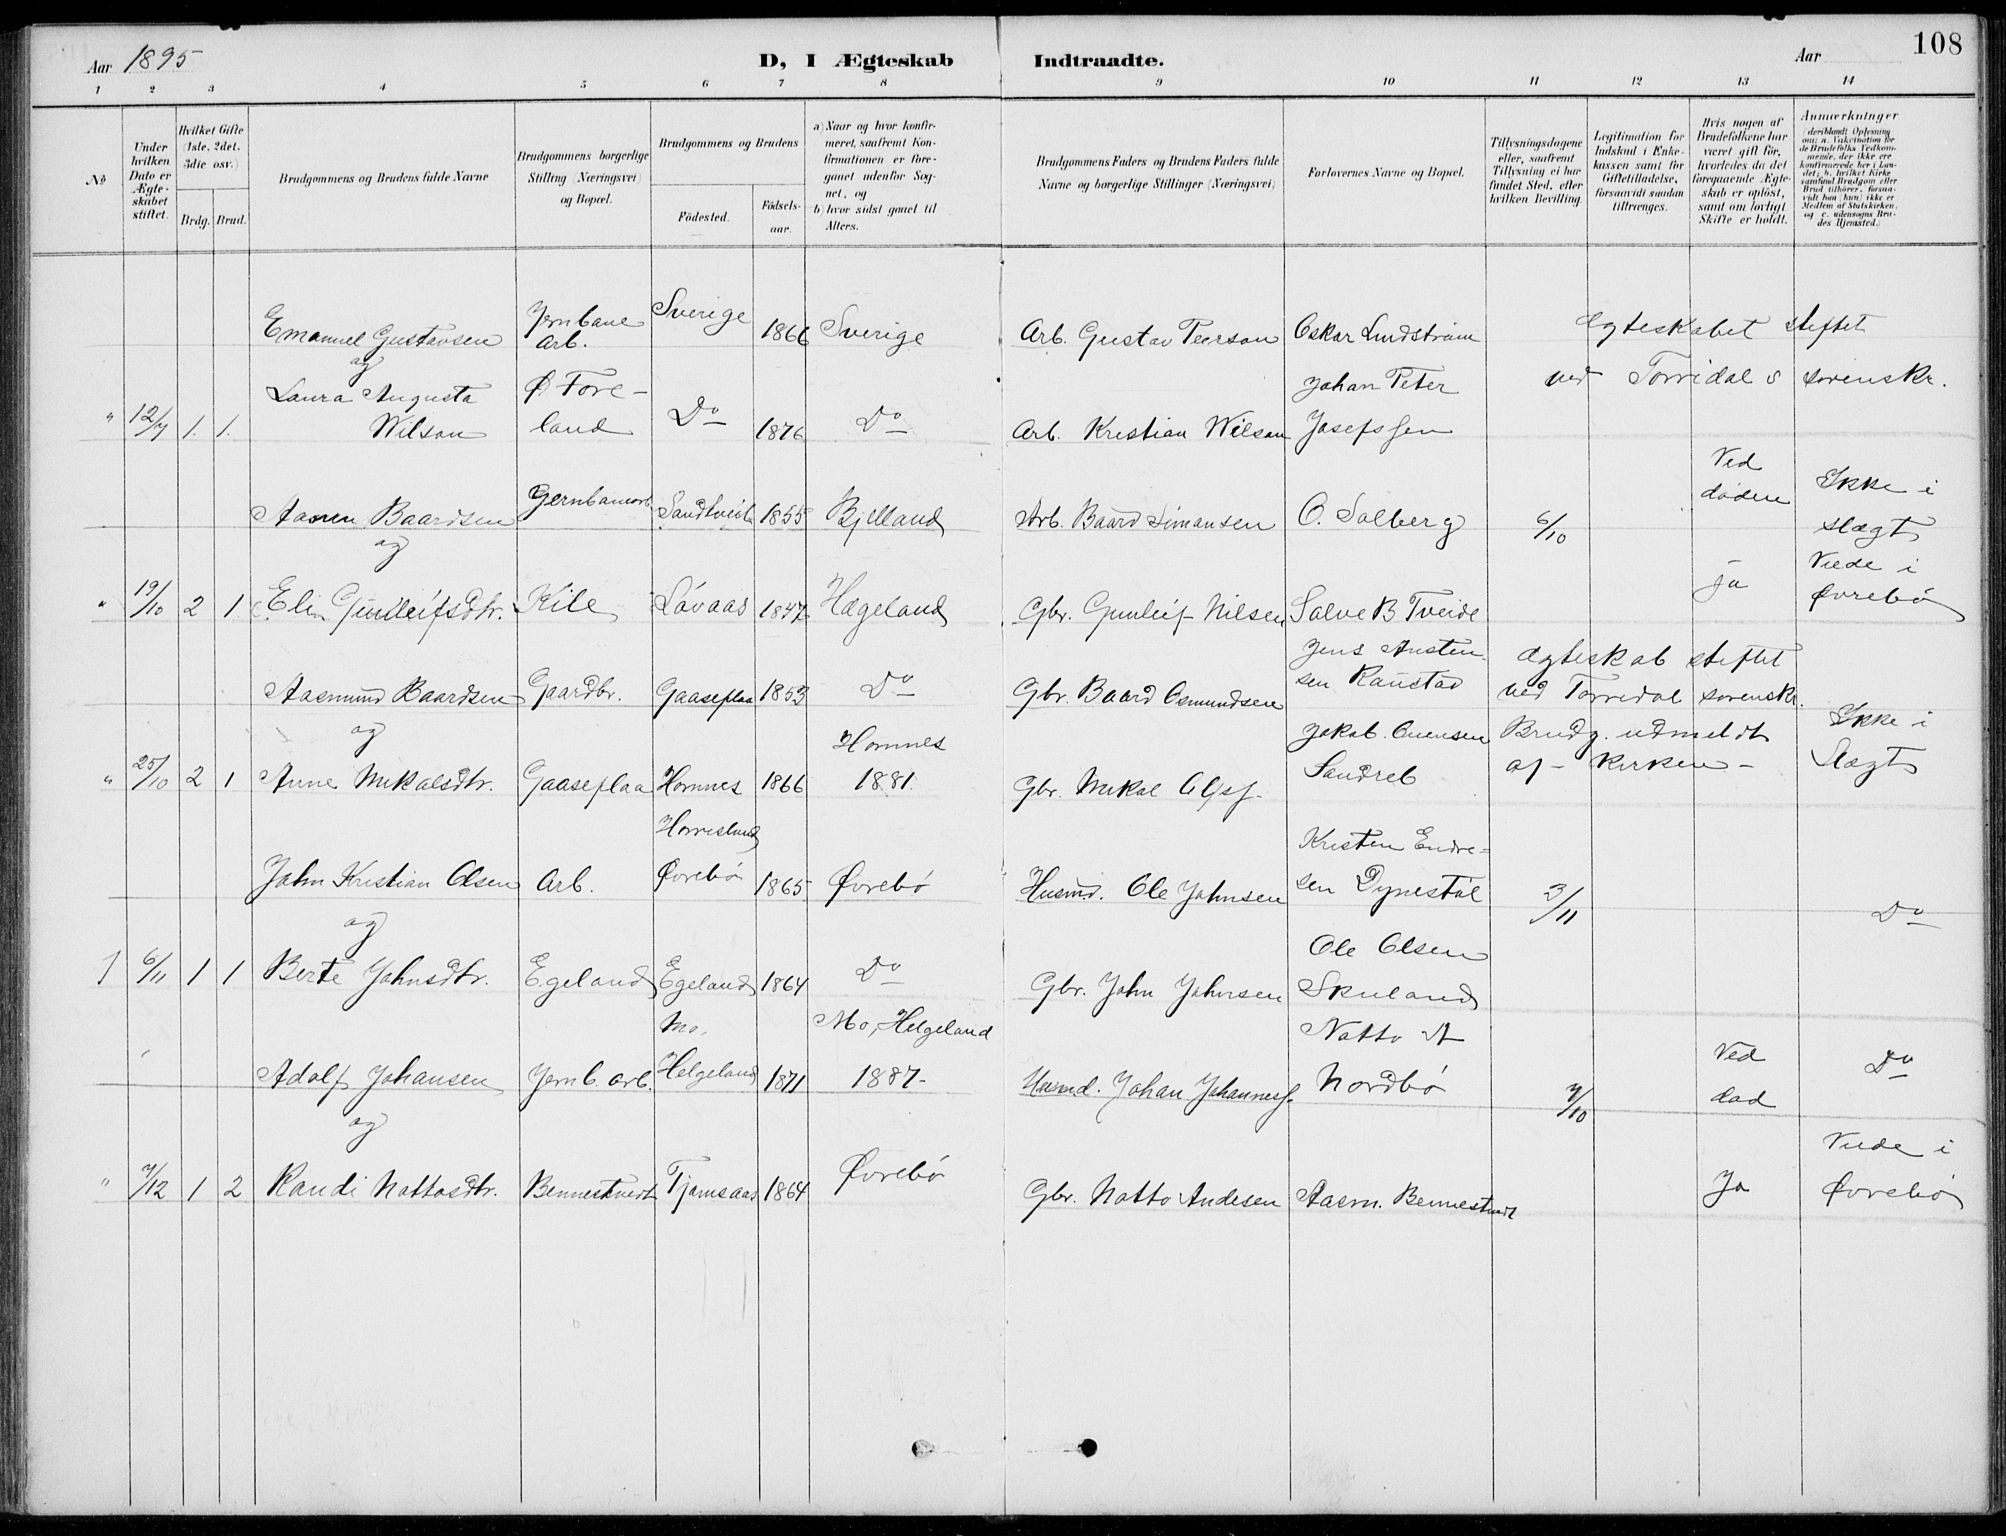 Aar 1895
D, I Ægteskab Indtraadte.
Aar
108
1 2 3 4 5 6 7 8 9 10 11 12 13 14
No
Under hvilken Dato er Ægteskabet stiftet.
Hvilket Gifte (1ste, 2det, 3die osv.)
Brdg. Brud.
Brudgommens og Brudens fulde Navne
Brudgommens borgerlige Stilling (Næringsvei) og Bopæl.
Brudgommens og Brudens
Fødested.
Fødselsaar.
a) Naar og hvor konfirmeret, saafremt Konfirmationen er foregaaet udenfor Sognet, og
b) hvor sidst gaaet til Alters.
Brudgommens Faders og Brudens Faders fulde Navne og borgerlige Stillinger (Næringsvei)
Forlovernes Navne og Bopæl.
Tillysningsdagene eller, saafremt Tillysning ei har fundet Sted, efter hvilken Bevilling.
Legitimation for Indskud i Enkekassen samt for Giftetilladelse, forsaavidt saadan tiltrænges.
Hvis nogen af Brudefolkene har været gift før, hvorledes da det foregaaende Ægteskab er opløst, samt om lovligt Skifte er holdt.
Anmærkninger
(deriblandt Oplysning om: a. Vakcination for de Brudefolks Vedkommende, der ikke ere konfirmerede her i Landet; b. hvilket Kirkesamfund Brudgom eller Brud tilhører, forsaavidt han (hun) ikke er Medlem af Statskirken, og c. udensogns Brudes Hjemsted.)
Emanuel Gustavsen Jernbane arb. Sverige 1866 Sverige Arb. Gustav Peerson Oskar Lindstrøm Egteskabet stiftet
og
Laura Augusta Ø. Fore- Johan Peter ved Torridal s sorenskr.
" 12/7 1. 1. Wilson land Do 1876 Do Arb. Kristian Wilson Josefssen
Baardsen Jernbanearb. Sandtveit 1855 Bjelland Arb. Baard Simonsen O. Solberg 6/10 Ved døden Ikke i slægt
og
" 19/10 2 1 Elin Gunleifsdtr. Kile Løvaas 1847 Hægeland Gbr. Gunleif Nilsen Salve B Tveide ja Viede i Øvrebø
Aasmund Baardsen Gaardbr. Gaaseflaa 1853 Do Gbr. Baard Osmundsen Jens Austensen Raustad Ægteskab stiftet ved Torridal sorenskr.
og
" 25/10 2 1 Anne Mikalsdtr. Gaaseflaa Hornnes 1866 Hornnes 1881. Gbr. Mikal Olss. Jakob Ouensen Sandreb Brudg. udmeldt af kirken Ikke i Slægt
John Kristian Olsen Arb. Horrisland Øvrebø 1865 Øvrebø Husmd. Ole Johnsen Kristen Endresen Dynestøl 3/11 Do
og
1 6/11 1 1 Berte Johnsdtr. Egeland Egeland 1864 Do Gbr. John Johnsen Ole Olsen Skuland
Adolf Johansen Jernb. arb. Mo, Helgeland 1871 Mo, Helgeland 1887 Husmd. Johan Johanness. Notto A Nordbø 7/10 Ved død Do
og
" 7/12 1 2 Randi Nottosdtr. Bennestvedt Tjomsaas 1864 Øvrebø Gbr. Notto Andesen Aasm. Bennestvedt Ja Viede i Øvrebø